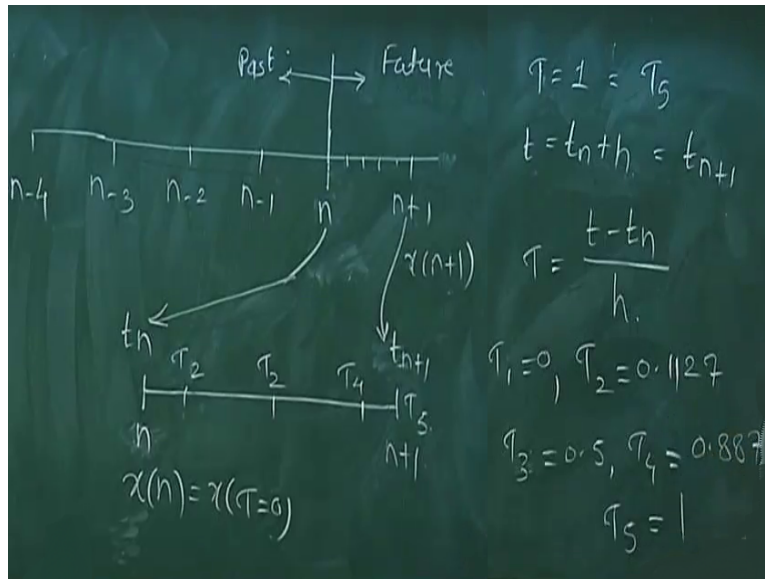 Past Future
n-4 n-3 n-2 n-1 n n+1
x(n+1)
tn tn+1
τ2 τ2 τ4 τ5
n n+1
x(n)=x(τ=0)
τ=1 = τ5
t=tn+h = tn+1
τ= t-tn
h.
τ1=0, τ2=0.1127
τ3=0.5, τ4=0.887
τ5=1